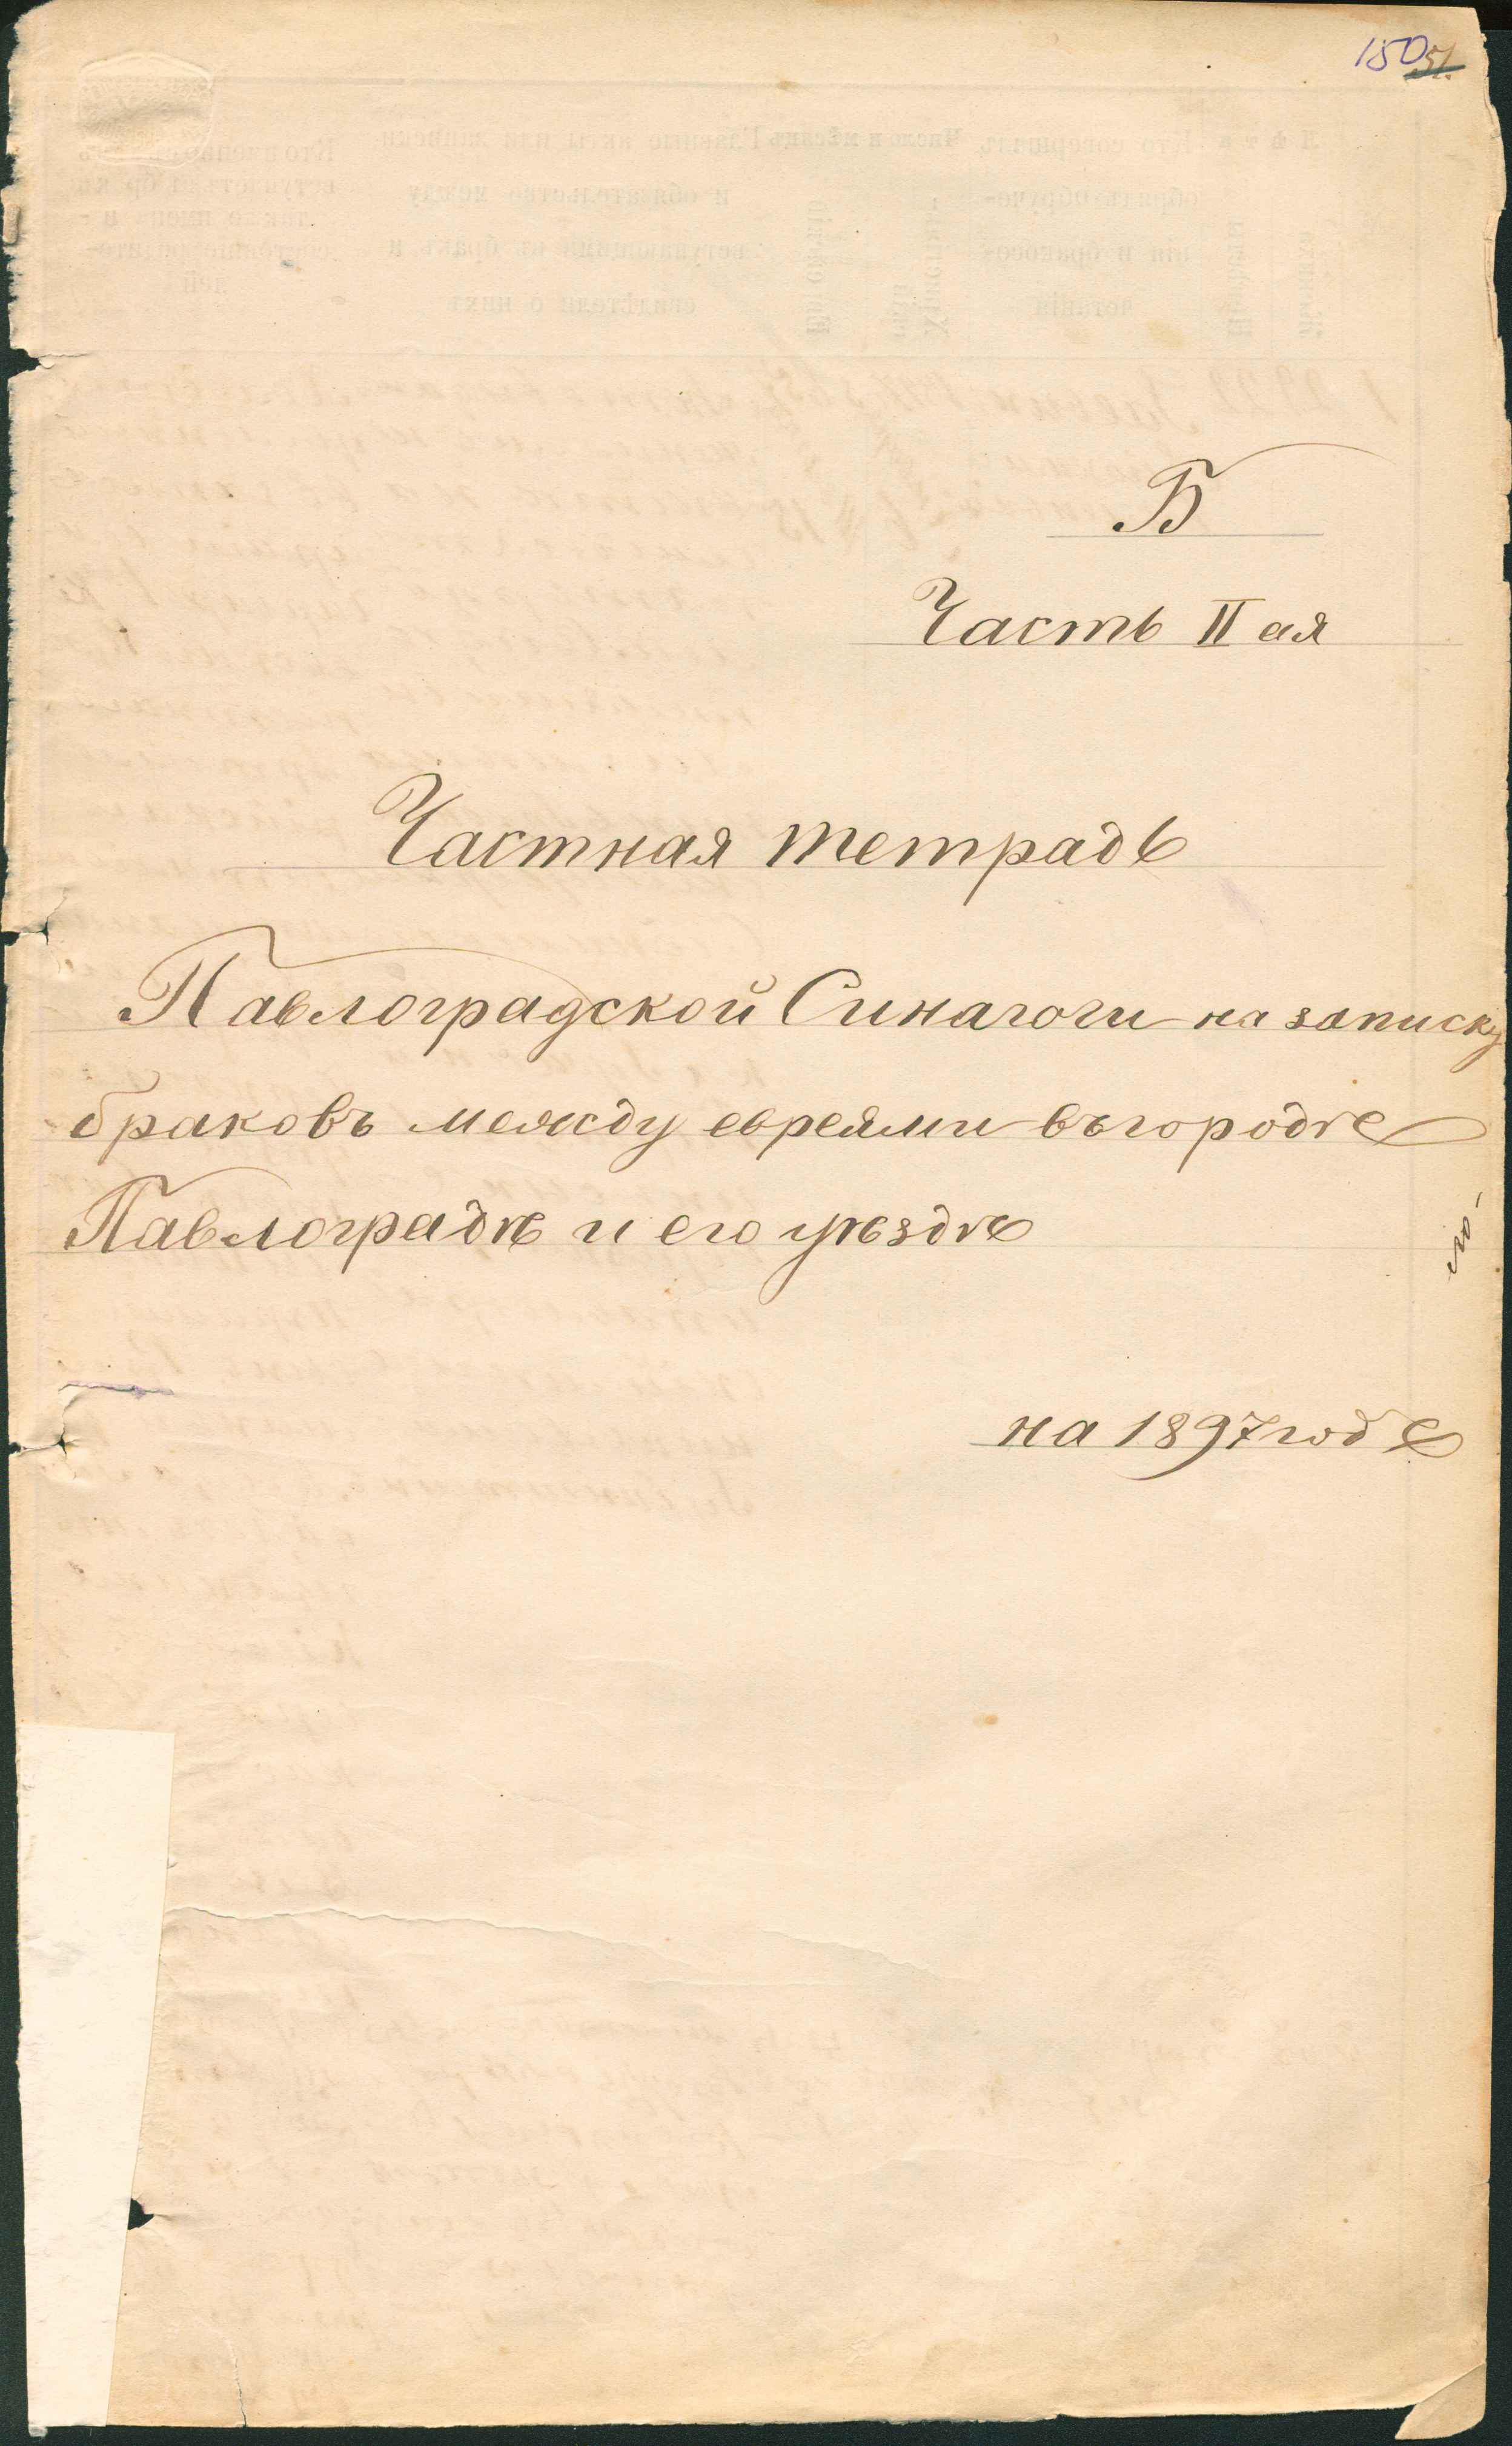 150 51.
Б
Часть II ая
Частная тетрадь
Павлоградской Синагоги на записку
браковъ между евреями въ городѣ
Павлоградѣ и его уѣздѣ
на 1897 годъ